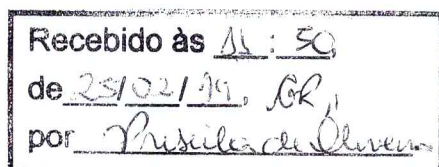 Recebido às 11 : 50,
de 25/02/19, GR,
por Priscila de Oliveira